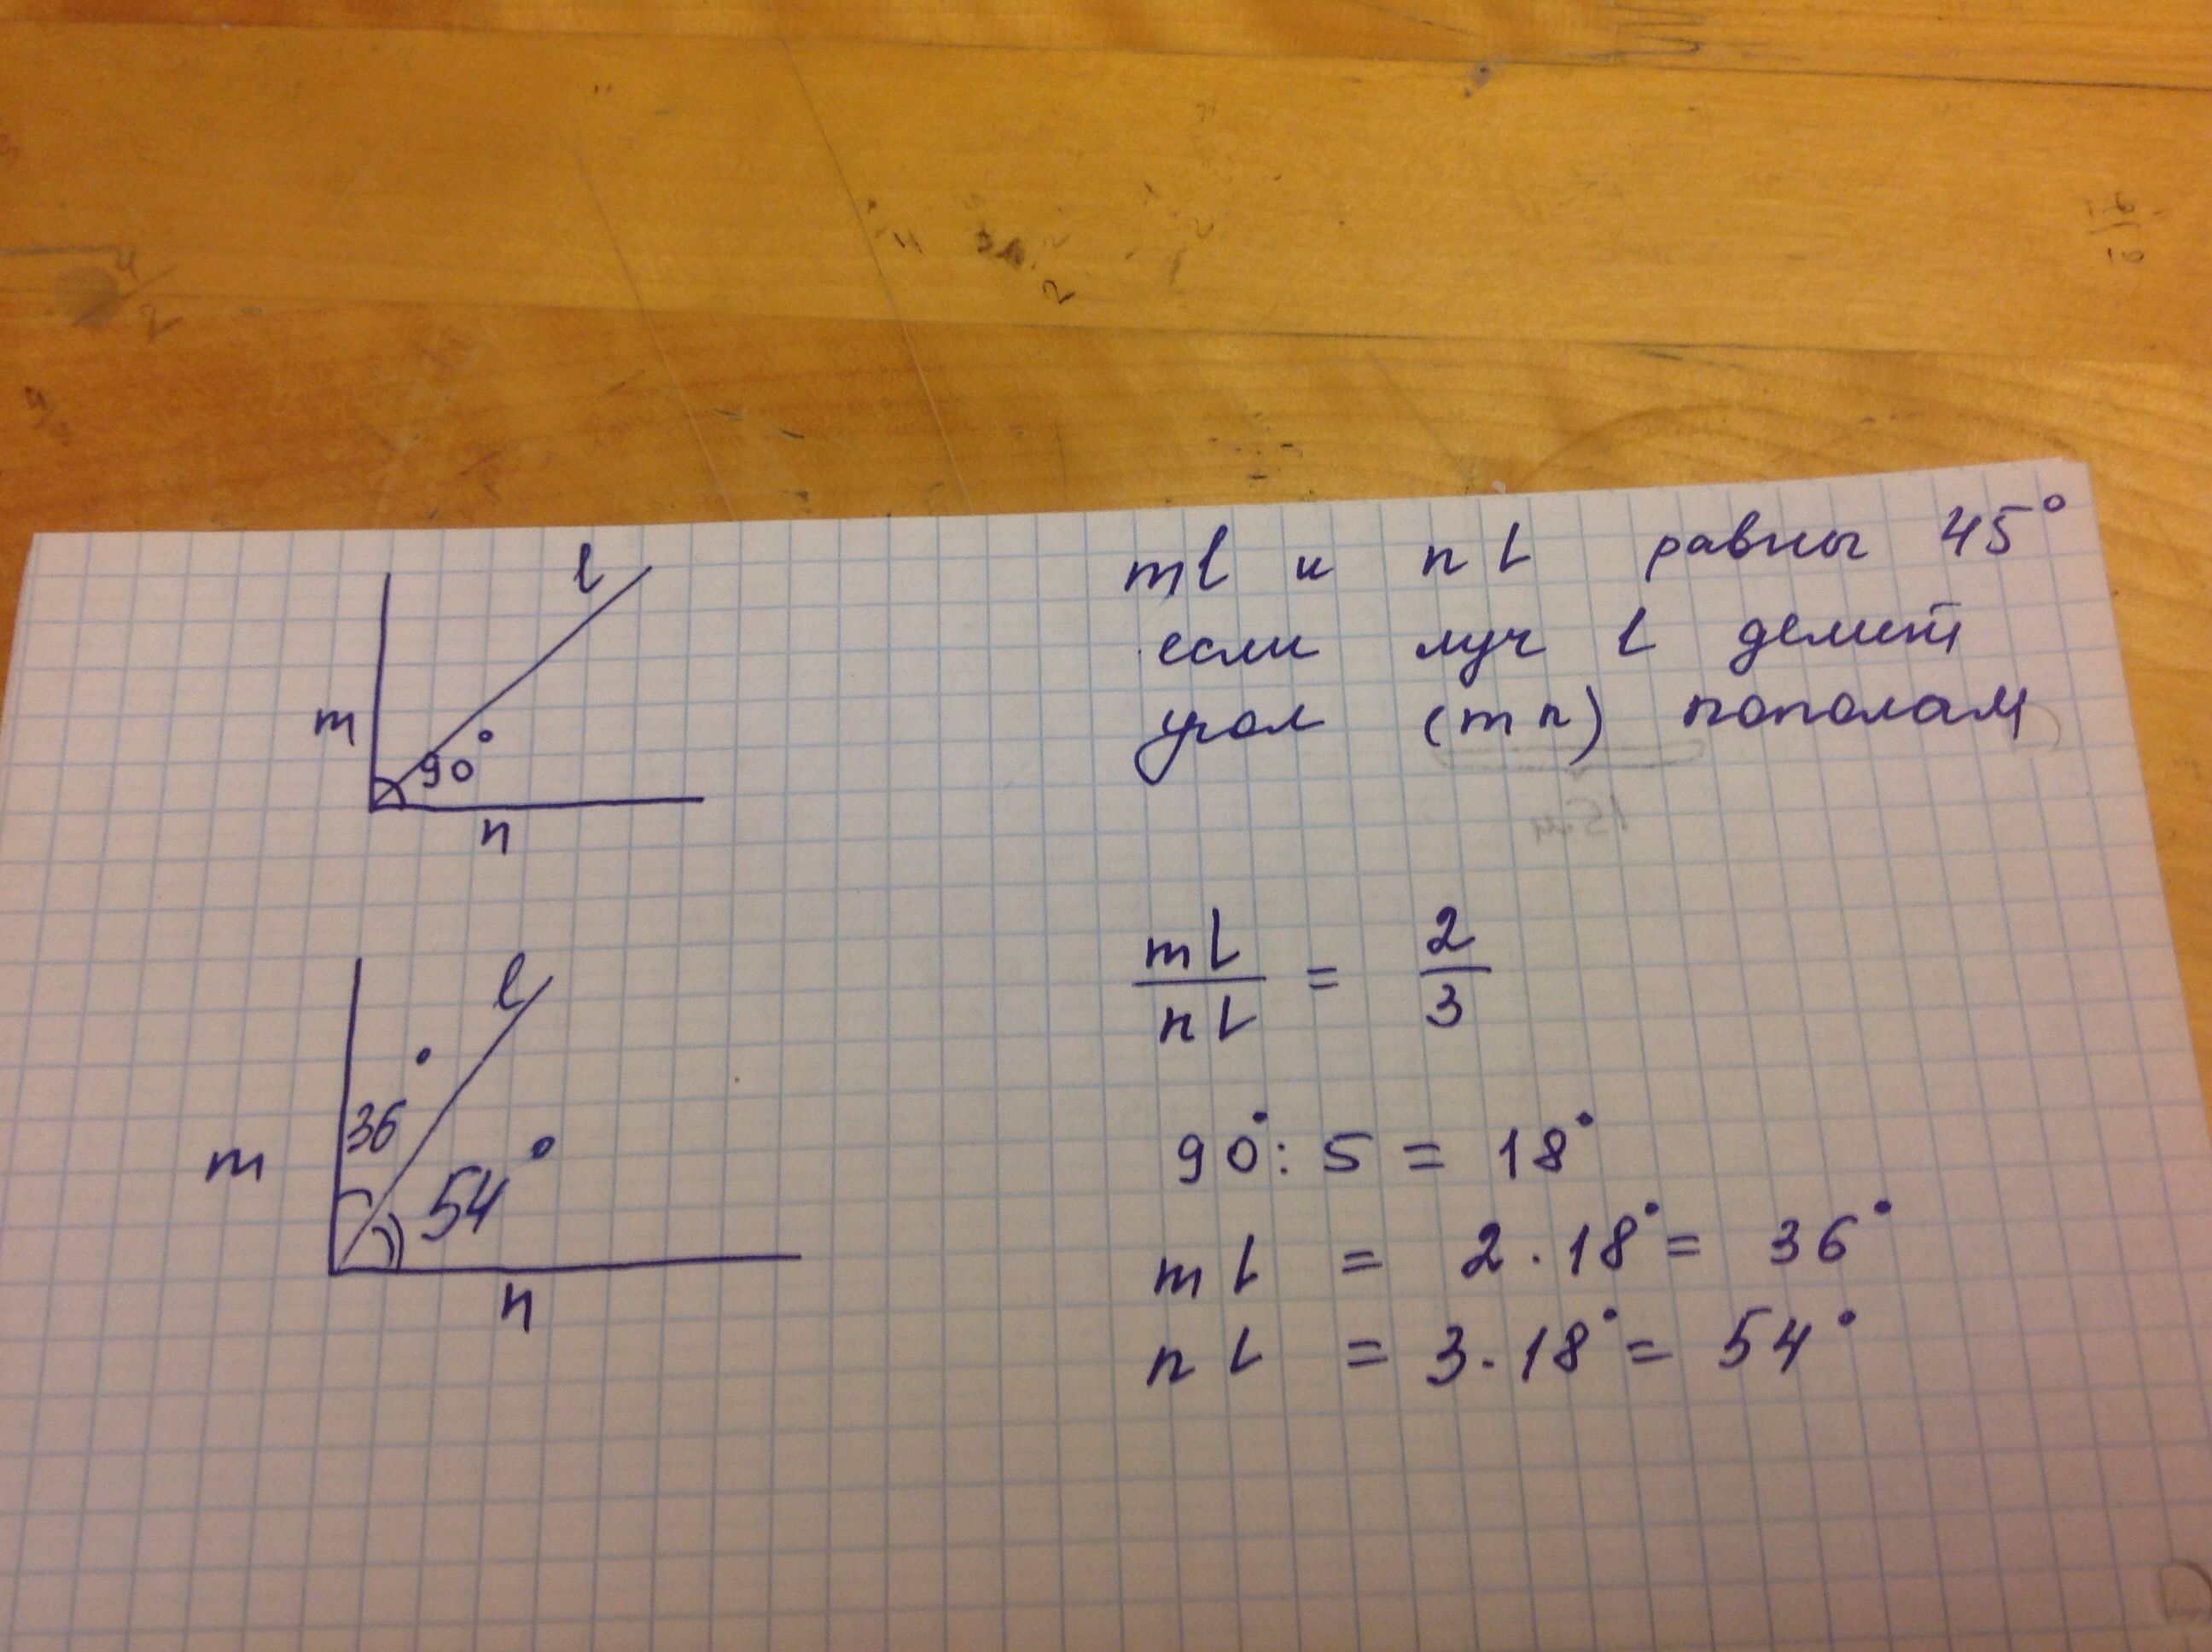 l
m
90°
n
ml и nl равны 45°
если луч l делит
угол (mn) пополам
l
36°
m
54°
n
ml
nl
=
2
3
90° : 5 = 18°
ml = 2 · 18° = 36°
nl = 3 · 18° = 54°